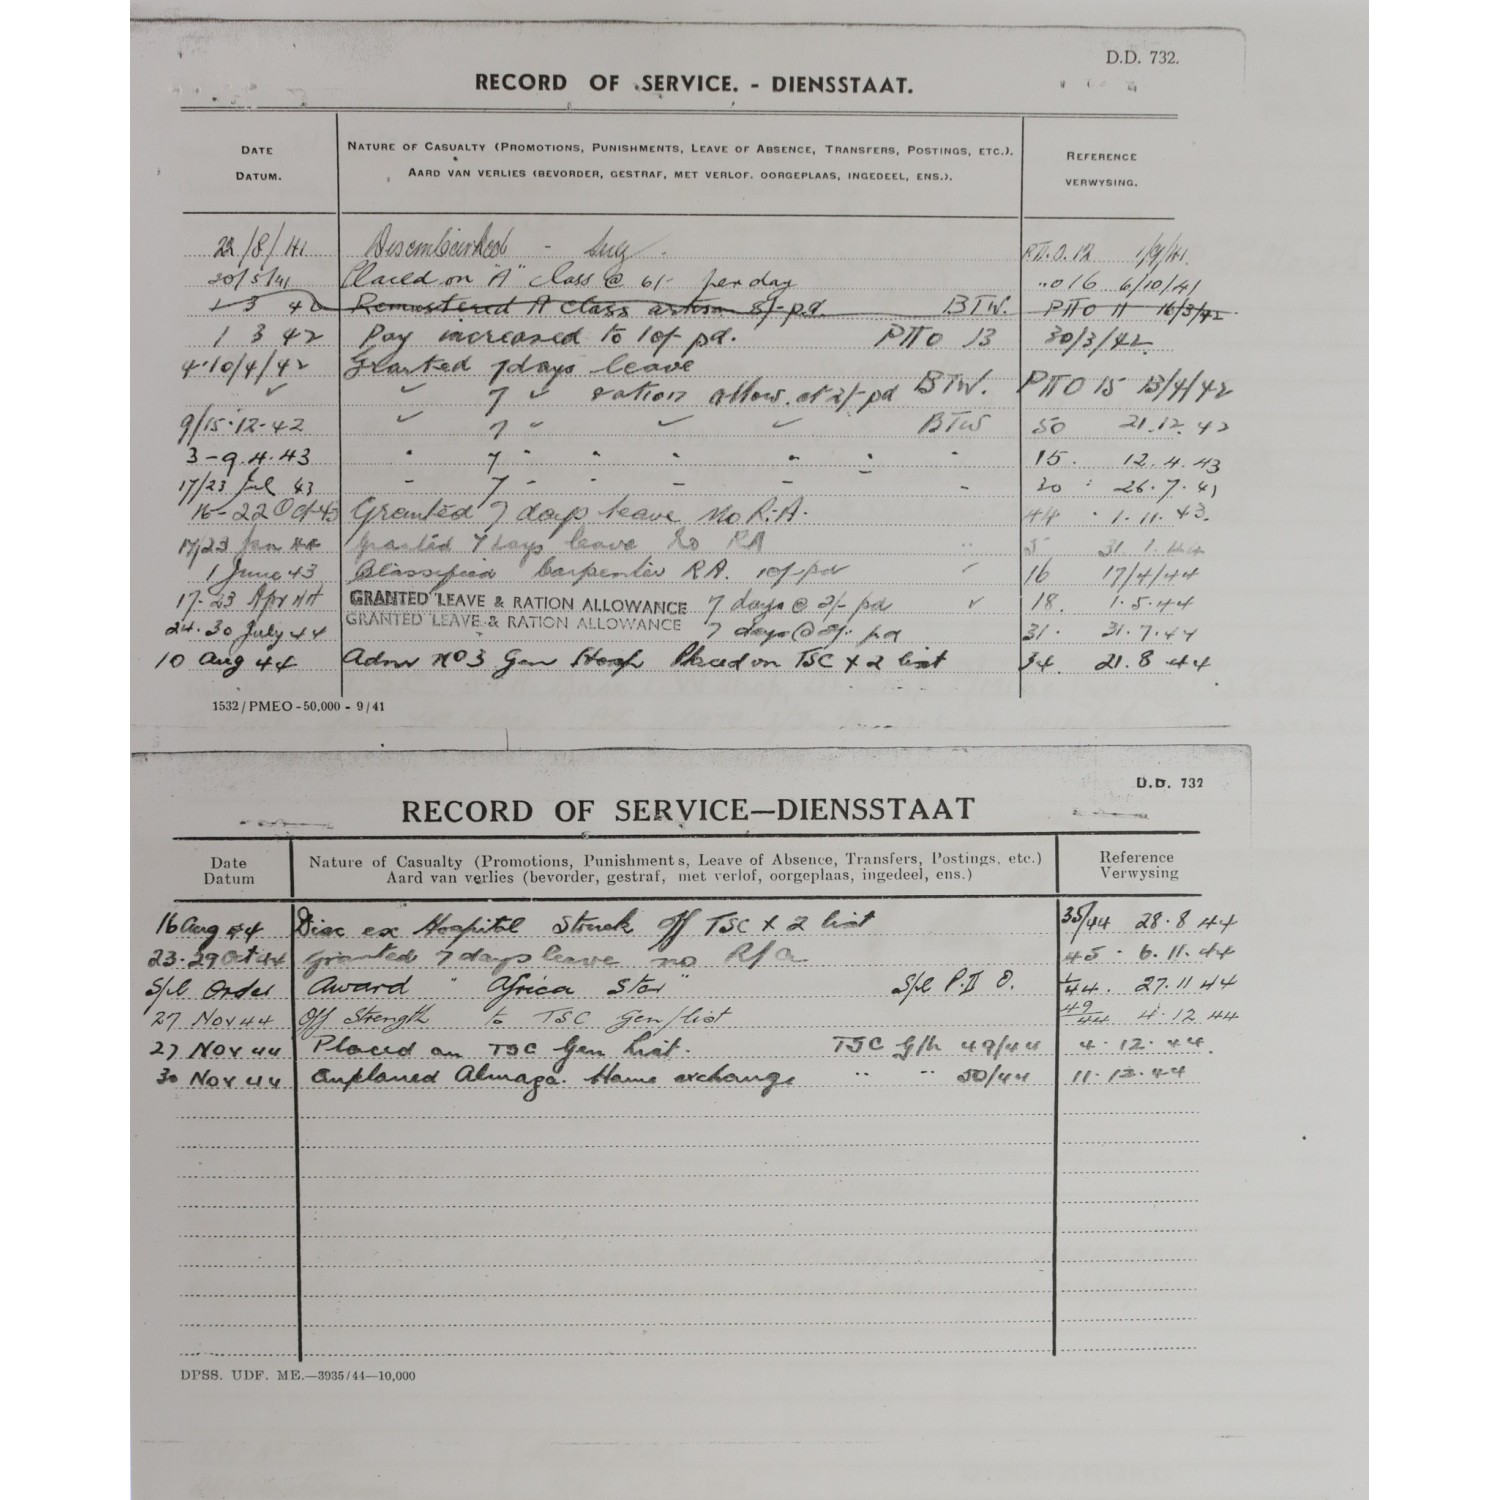 D.D. 732.
RECORD OF SERVICE. - DIENSSTAAT.
DATE NATURE OF CASUALTY (PROMOTIONS, PUNISHMENTS, LEAVE OF ABSENCE, TRANSFERS, POSTINGS, ETC.). REFERENCE
DATUM. AARD VAN VERLIES (BEVORDER, GESTRAF, MET VERLOF. OORGEPLAAS, INGEDEEL, ENS.). VERWYSING.
22/8/41 Disembarked - Suez. 12 1/9/41.
20/5/41 Placed on "A" Class @ 6/- per day 016 6/10/41
1 3 42 Remustered A Class artisan 8/- p.d. BTW. PIIO 11 16/3/42
1 3 42 Pay increased to 10/- pd. PIIO 13 30/3/42
4-10/4/42 Granted 7 days leave
✓ ✓ 7 ✓ ration allow. at 2/- pd BTW. PIIO 15 13/4/42
9/15-12-42 ✓ 7 " ✓ ✓ BTW 50 21.12.42
3-9.4.43 " 7 " " " " " " 15. 12.4.43
17/23 Jul 43 - 7 - - - - - 30 26.7.43
16-22 Oct 43 Granted 7 days leave No R.A. 44 1.11.43.
17/23 Jan 44 Granted 7 days leave No RA " 5 31.1.44
1 June 43 Classified Carpenter RA. 10/- pd " 16 17/4/44
17-23 Apr 44 GRANTED LEAVE & RATION ALLOWANCE 7 days @ 2/- pd ✓ 18. 1.5.44
24.30 July 44 GRANTED LEAVE & RATION ALLOWANCE 7 days @ 2/- pd 31. 31.7.44
10 Aug 44 Adm No 3 Gen Hosp Placed on TSC X 2 list 34. 21.8.44
1532/PMEO-50,000-9/41
D.D. 732
RECORD OF SERVICE—DIENSSTAAT
Date Nature of Casualty (Promotions, Punishments, Leave of Absence, Transfers, Postings, etc.) Reference
Datum Aard van verlies (bevorder, gestraf, met verlof, oorgeplaas, ingedeel, ens.) Verwysing
16 Aug 44 Disc ex Hospital Struck off TSC X 2 list 35/44 28.8.44
23.29 Oct 44 Granted 7 days leave no R/A 45 6.11.44
Spl Order Award "Africa Star" Spl P.II O. 1/44. 27.11.44
27 Nov 44 Off Strength to TSC Gen/list 49/44 4.12.44
27 Nov 44 Placed on TSC Gen List. TSC G/L 49/44 4.12.44.
30 Nov 44 Emplaned Almaza. Home exchange " " 50/44 11.12.44
DPSS. UDF. ME.—3935/44—10,000